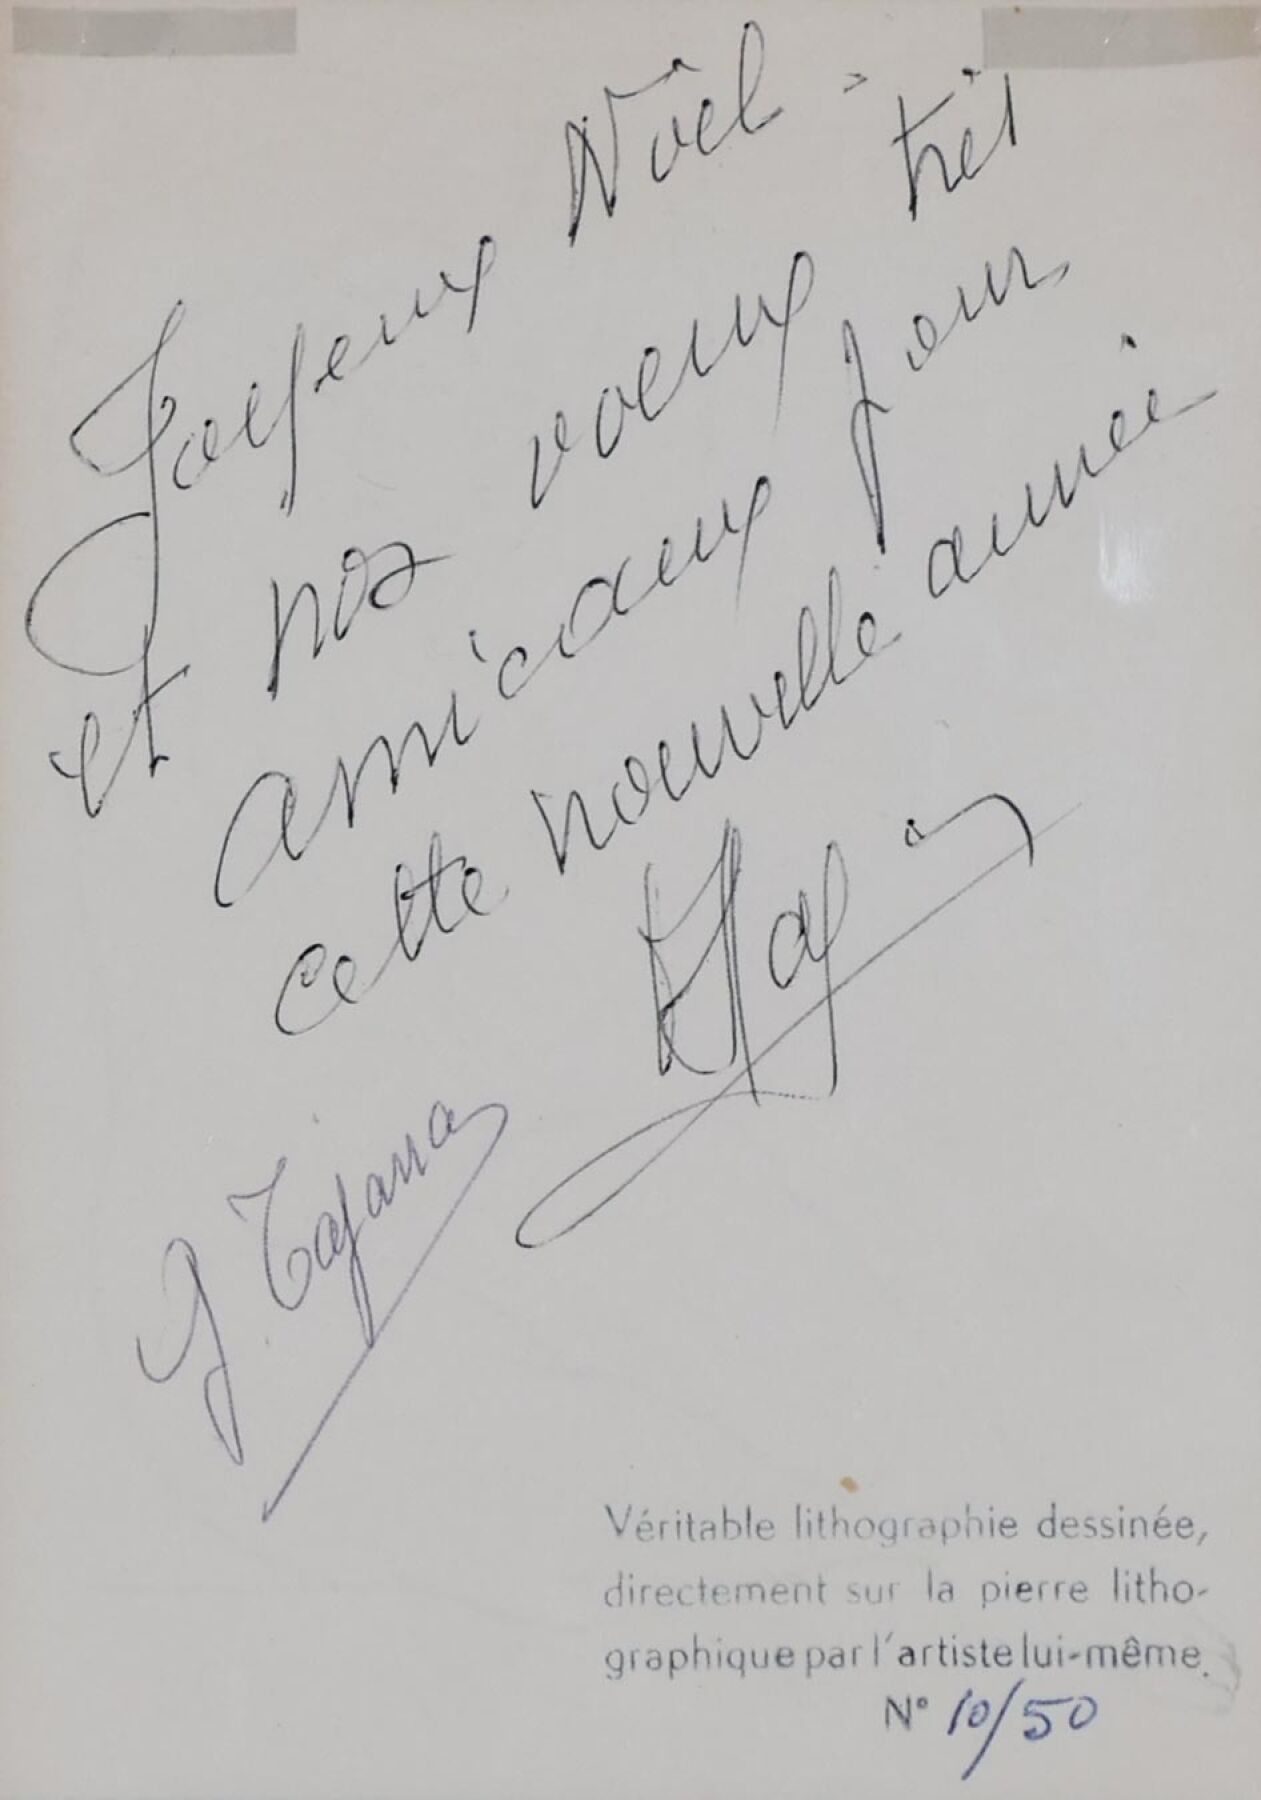 Joyeux Noël
et nos voeux très
amicaux pour
cette nouvelle année
Véritable lithographie dessinée,
directement sur la pierre litho-
graphique par l'artiste lui-même.
N° 10/50